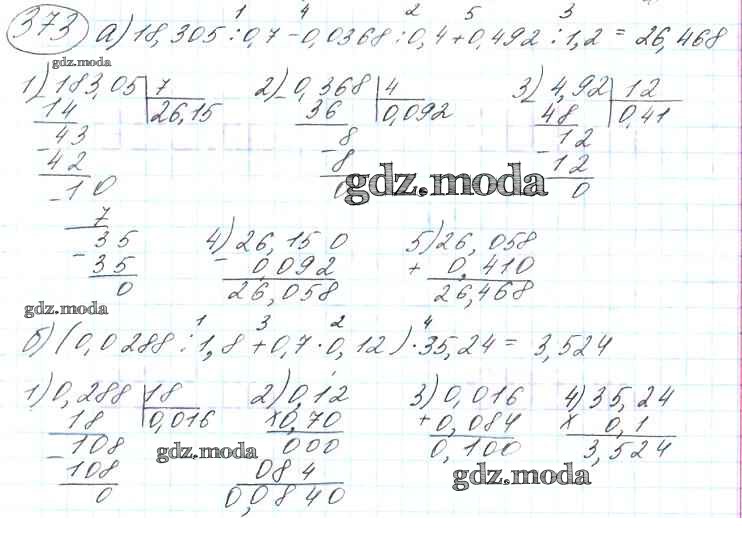 373 а) 18,305 : 0,7 - 0,0368 : 0,4 + 0,492 : 1,2 = 26,468
1 4 2 5 3
gdz.moda
1) 183,05 | 7
- 14 26,15
- 43
42
- 10
7
- 35
35
0
2) 0,368 | 4
- 36 0,092
- 8
8
0
3) 4,92 | 12
- 48 0,41
- 12
12
0
gdz.moda
4) 26,150
- 0,092
26,058
5) 26,058
+ 0,410
26,468
gdz.moda
1 3 2 4
б) (0,0288 : 1,8 + 0,7 · 0,12) · 35,24 = 3,524
1) 0,288 | 18
- 18 0,016
- 108
108
0
gdz.moda
2) 0,12
x 0,70
000
084
0,0840
3) 0,016
+ 0,084
0,100
4) 35,24
x 0,1
3,524
gdz.moda